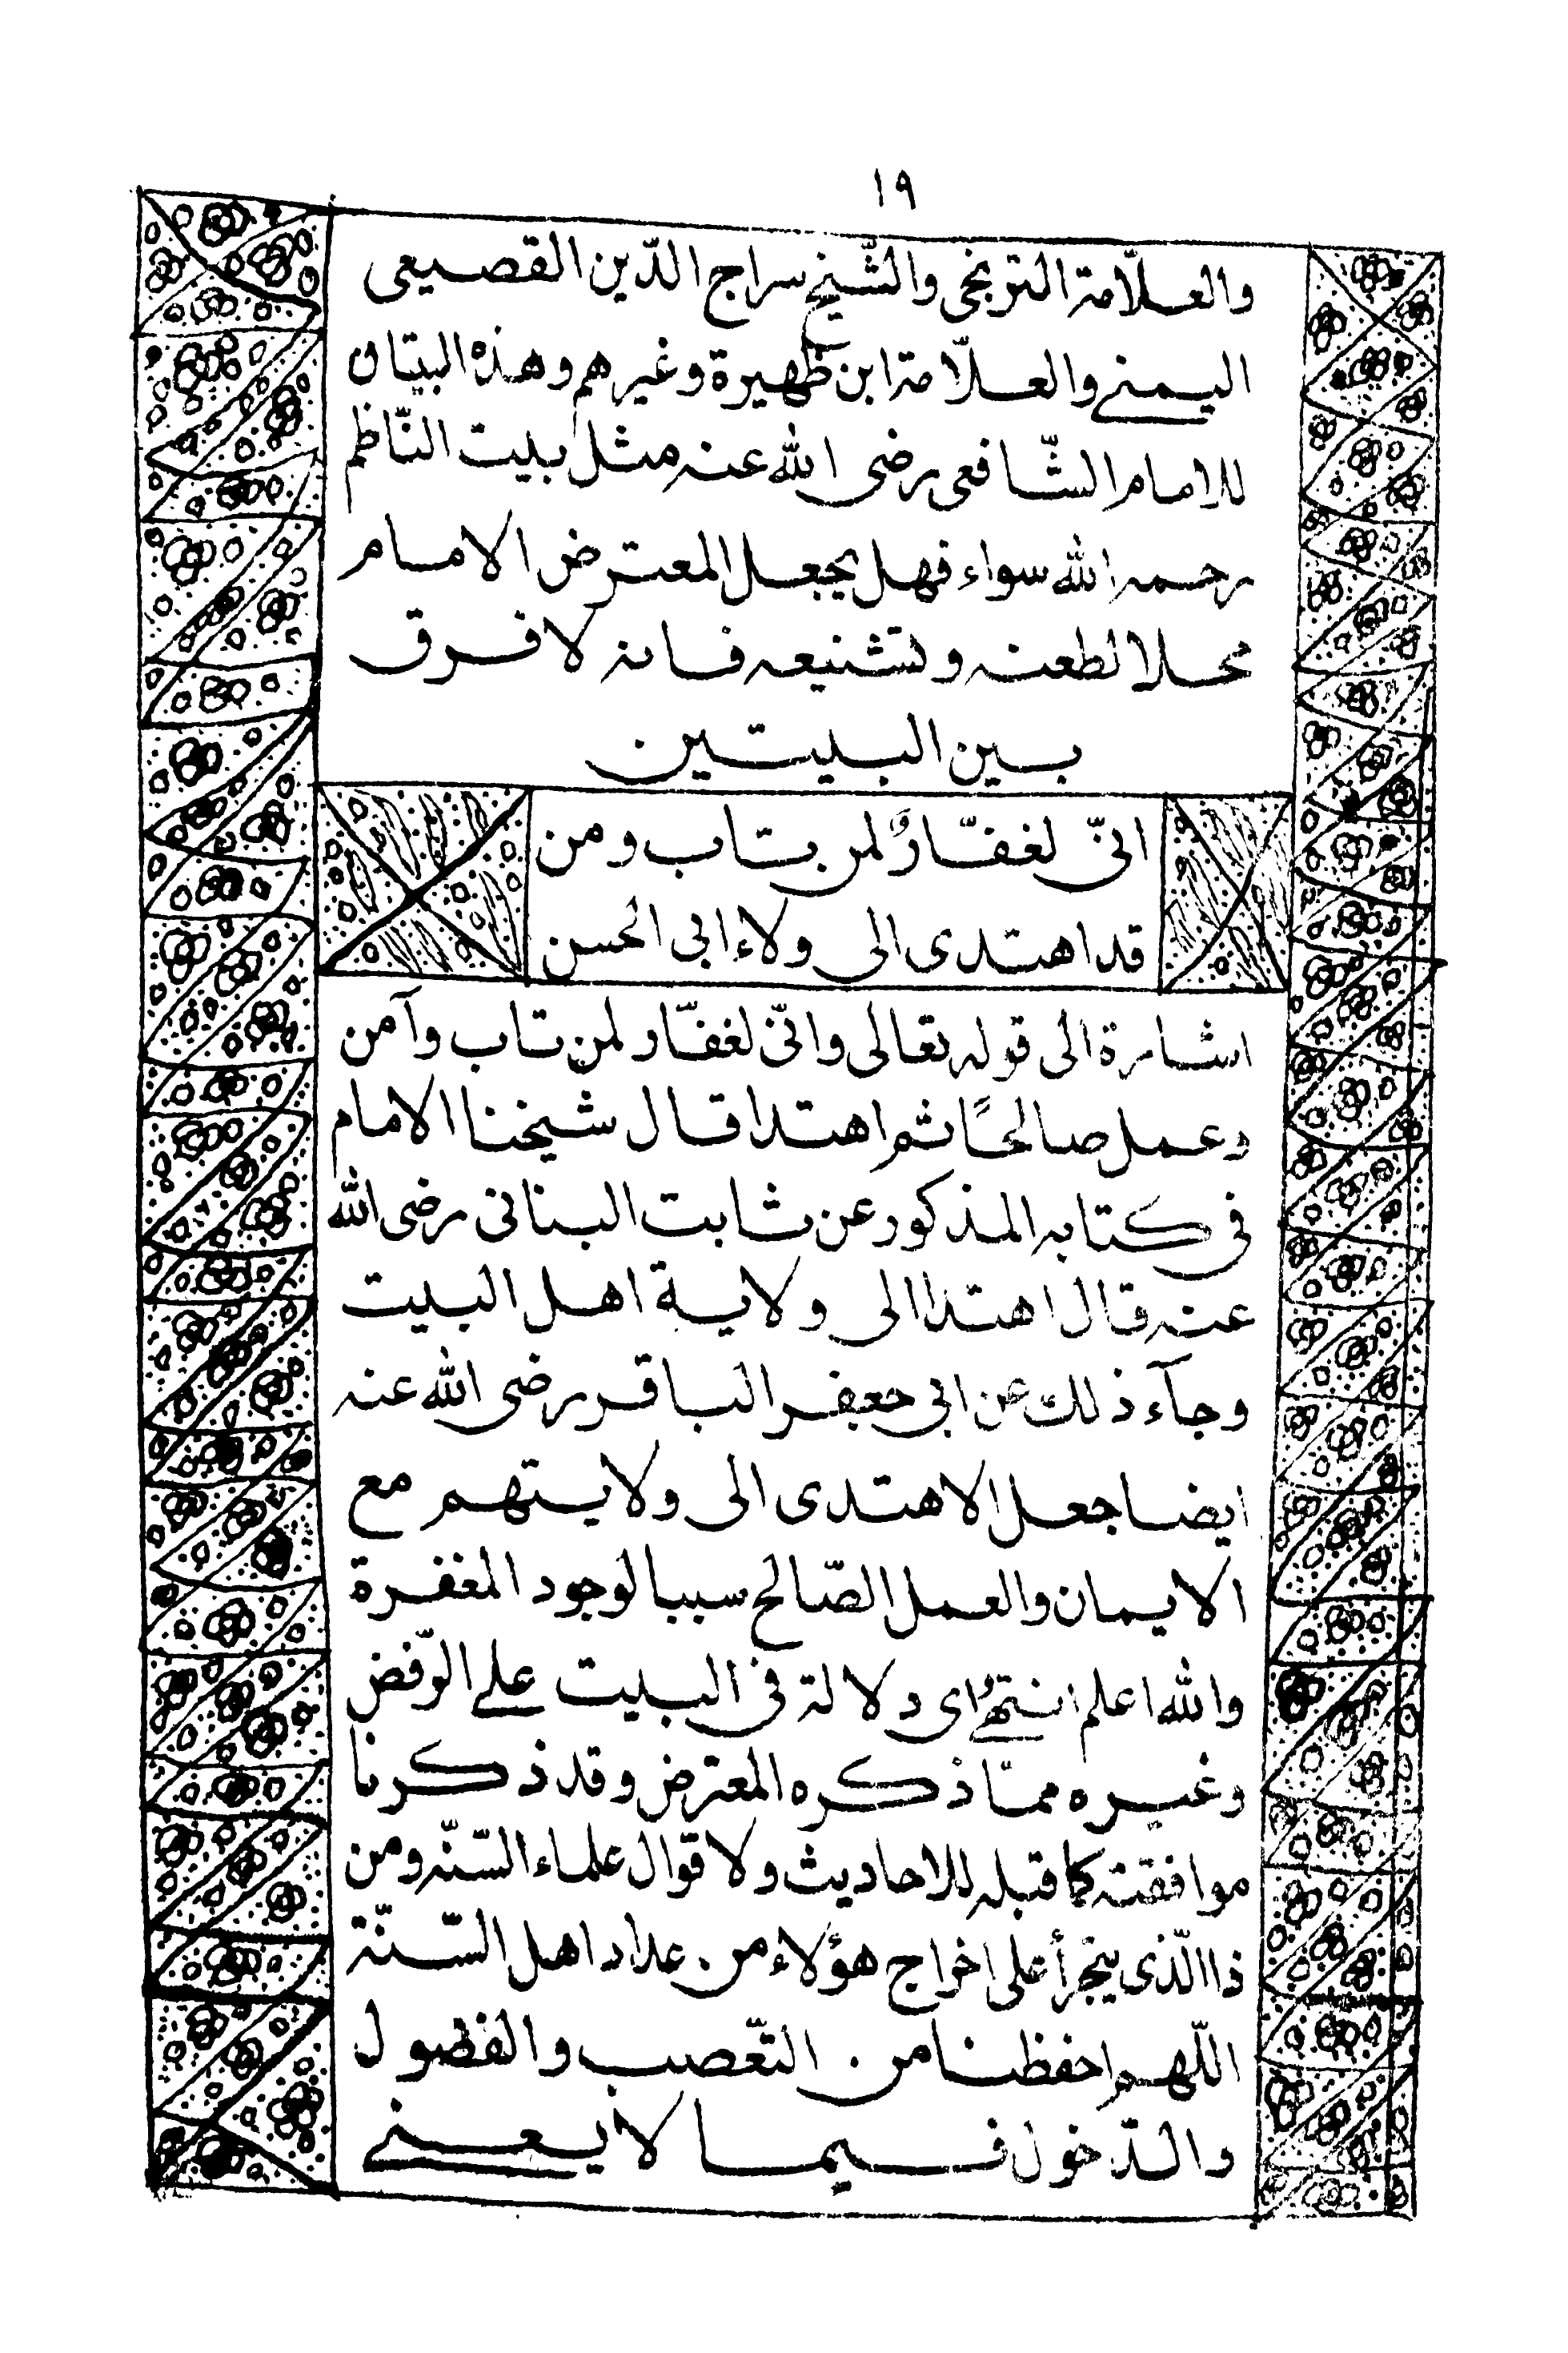 ١٩
والعلّامة التربخى والشّيخ سراج الدّين القصيعى
اليمنے والعلّامة ابن ظهيرة وغيرهم وهذه البيتان
للامام الشّافعى رضى الله عنه مثل بيت النّاظم
رحمه الله سواء فهل يجعل المعترض الامام
محلا لطعنه وتشنيعه فانه لا فرق
بين البيتين
انىّ لغفّارٌ لمن تاب ومن
قد اهتدى الى ولاء ابى الحسن
اشارة الى قوله تعالى وانىّ لغفّار لمن تاب وآمن
وعمل صالحًا ثم اهتدا قال شيخنا الامام
فى كتابه المذكور عن ثابت البنانى رضى الله
عنه قال اهتدا الى ولاية اهل البيت
وجآء ذلك عن ابى جعفر الباقر رضى الله عنه
ايضا جعل الاهتدى الى ولايتهم مع
الايمان والعمل الصّالح سببا لوجود المغفرة
والله اعلم انتهےٰ اى دلالة فى البيت علے الرّفض
وغيره ممّا ذكره المعترض وقد ذكرنا
موافقته كما قبله للاحاديث ولاقوال علماء السّنّه ومن
ذا الّذى يتجرأ على اخراج هؤلاء من عداد اهل السّنّة
اللّهم احفظنا من التّعصب والفضول
والدّخول فيما لا يعنے